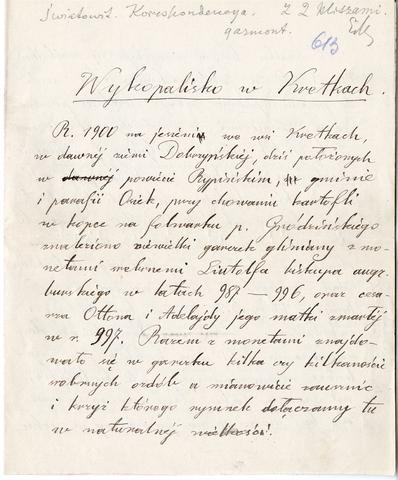 Światowit. Korespondencya. z 2 kliszami.
garmont.
613
Wykopalisko w Kretkach.
R. 1900 na jesieni we wsi Kretkach,
w dawnéj ziemi Dobrzyńskiéj, dziś położonych
w dawnéj powiecie Rypińskim, gminie
i parafii Osiek, przy chowaniu kartofli
w kopce na folwarku p. Gródzińskiego
znaleziono niewielki garnek gliniany z mo-
netami srebrnemi Liutolfa biskupa augs-
burskiego w latach 987–996, oraz cesa-
rza Ottona i Adelajdy jego matki zmarłéj
w r. 997. Razem z monetami znajdo-
wało się w garnku kilka czy kilkanaście
srebrnych ozdób a mianowicie zausznic
i krzyż którego rysunek dołączamy tu
w naturalnéj wielkości.